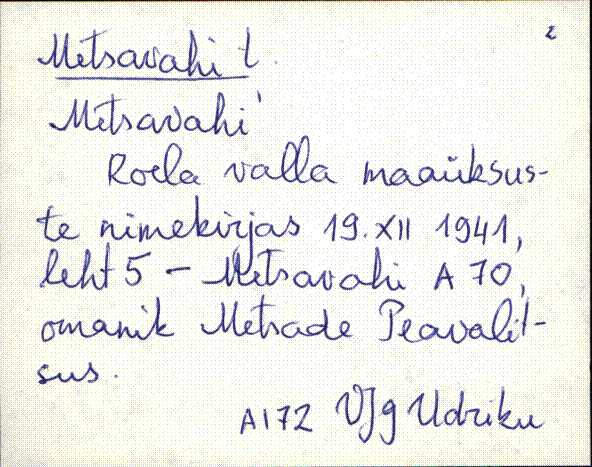 2
Metsavahi t.
Metsavahi'
Roela valla maaüksus-
te nimekirjas 19. XII 1941,
leht 5 – Metsavahi A 70,
omanik Metsade Peavalit-
sus.
A172 VJg Udriku